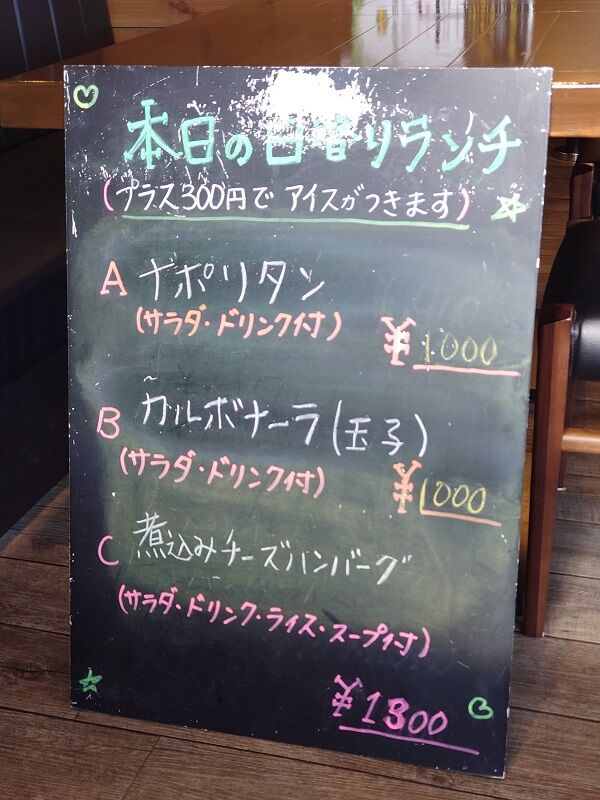 本日の日替りランチ
(プラス300円で アイスがつきます)
A ナポリタン
(サラダ・ドリンク付)
¥1000
B カルボナーラ(玉子)
(サラダ・ドリンク付)
¥1000
C 煮込みチーズハンバーグ
(サラダ・ドリンク・ライス・スープ付)
¥1300